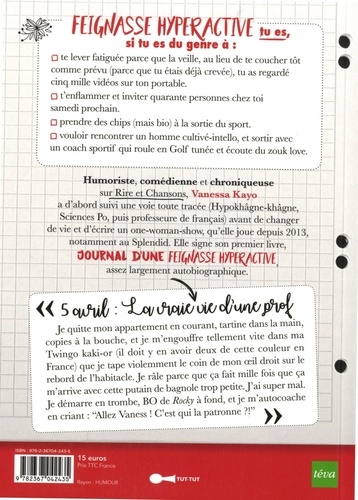 FEIGNASSE HYPERACTIVE tu es,
si tu es du genre à :
te lever fatiguée parce que la veille, au lieu de te coucher tôt
comme prévu (parce que tu étais déjà crevée), tu as regardé
cinq mille vidéos sur ton portable.
t'enflammer et inviter quarante personnes chez toi
samedi prochain.
prendre des chips (mais bio) à la sortie du sport.
vouloir rencontrer un homme cultivé-intello, et sortir avec
un coach sportif qui roule en Golf tunée et écoute du zouk love.
Humoriste, comédienne et chroniqueuse
sur Rire et Chansons, Vanessa Kayo
a d'abord suivi une voie toute tracée (Hypokhâgne-khâgne,
Sciences Po, puis professeur de français) avant de changer
de vie et d'écrire un one-woman-show, qu'elle joue depuis 2013,
notamment au Splendid. Elle signe son premier livre,
JOURNAL D'UNE FEIGNASSE HYPERACTIVE,
assez largement autobiographique.
« 5 avril : La vraie vie d'une prof
Je quitte mon appartement en courant, tartine dans la main,
copies à la bouche, et je m'engouffre tellement vite dans ma
Twingo kaki-or (il doit y en avoir deux de cette couleur en
France) que je tape violemment le coin de mon œil droit sur le
rebord de l'habitacle. Je râle parce que ça fait mille fois que ça
m'arrive avec cette putain de bagnole trop petite. J'ai super mal.
Je démarre en trombe, BO de Rocky à fond, et je m'autocoache
en criant : “Allez Vaness ! C'est qui la patronne ?!” »
ISBN : 978-2-36704-243-5
9782367042435
15 euros
Prix TTC France
Rayon : HUMOUR
TUT-TUT
téva